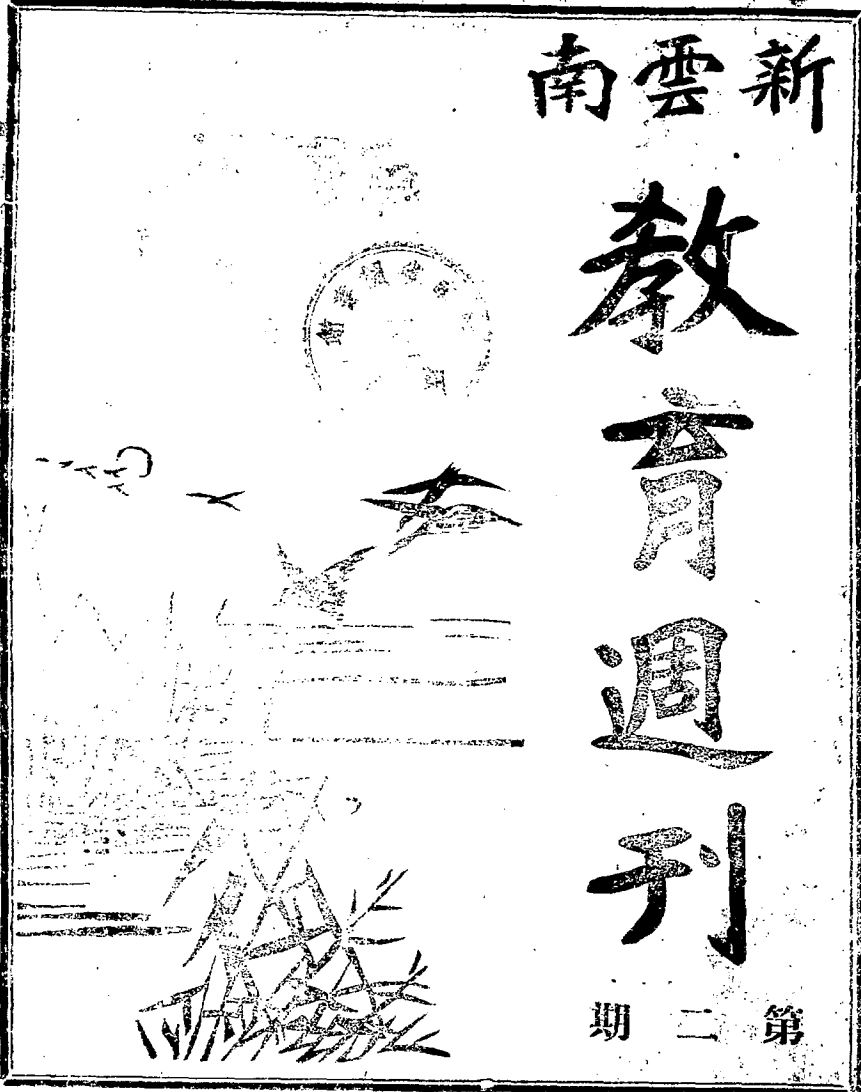 新雲南
教育週刊
第二期